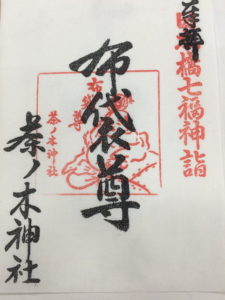 奉拝
日本橋七福神詣
布袋尊
茶ノ木神社
布袋尊
茶ノ木神社